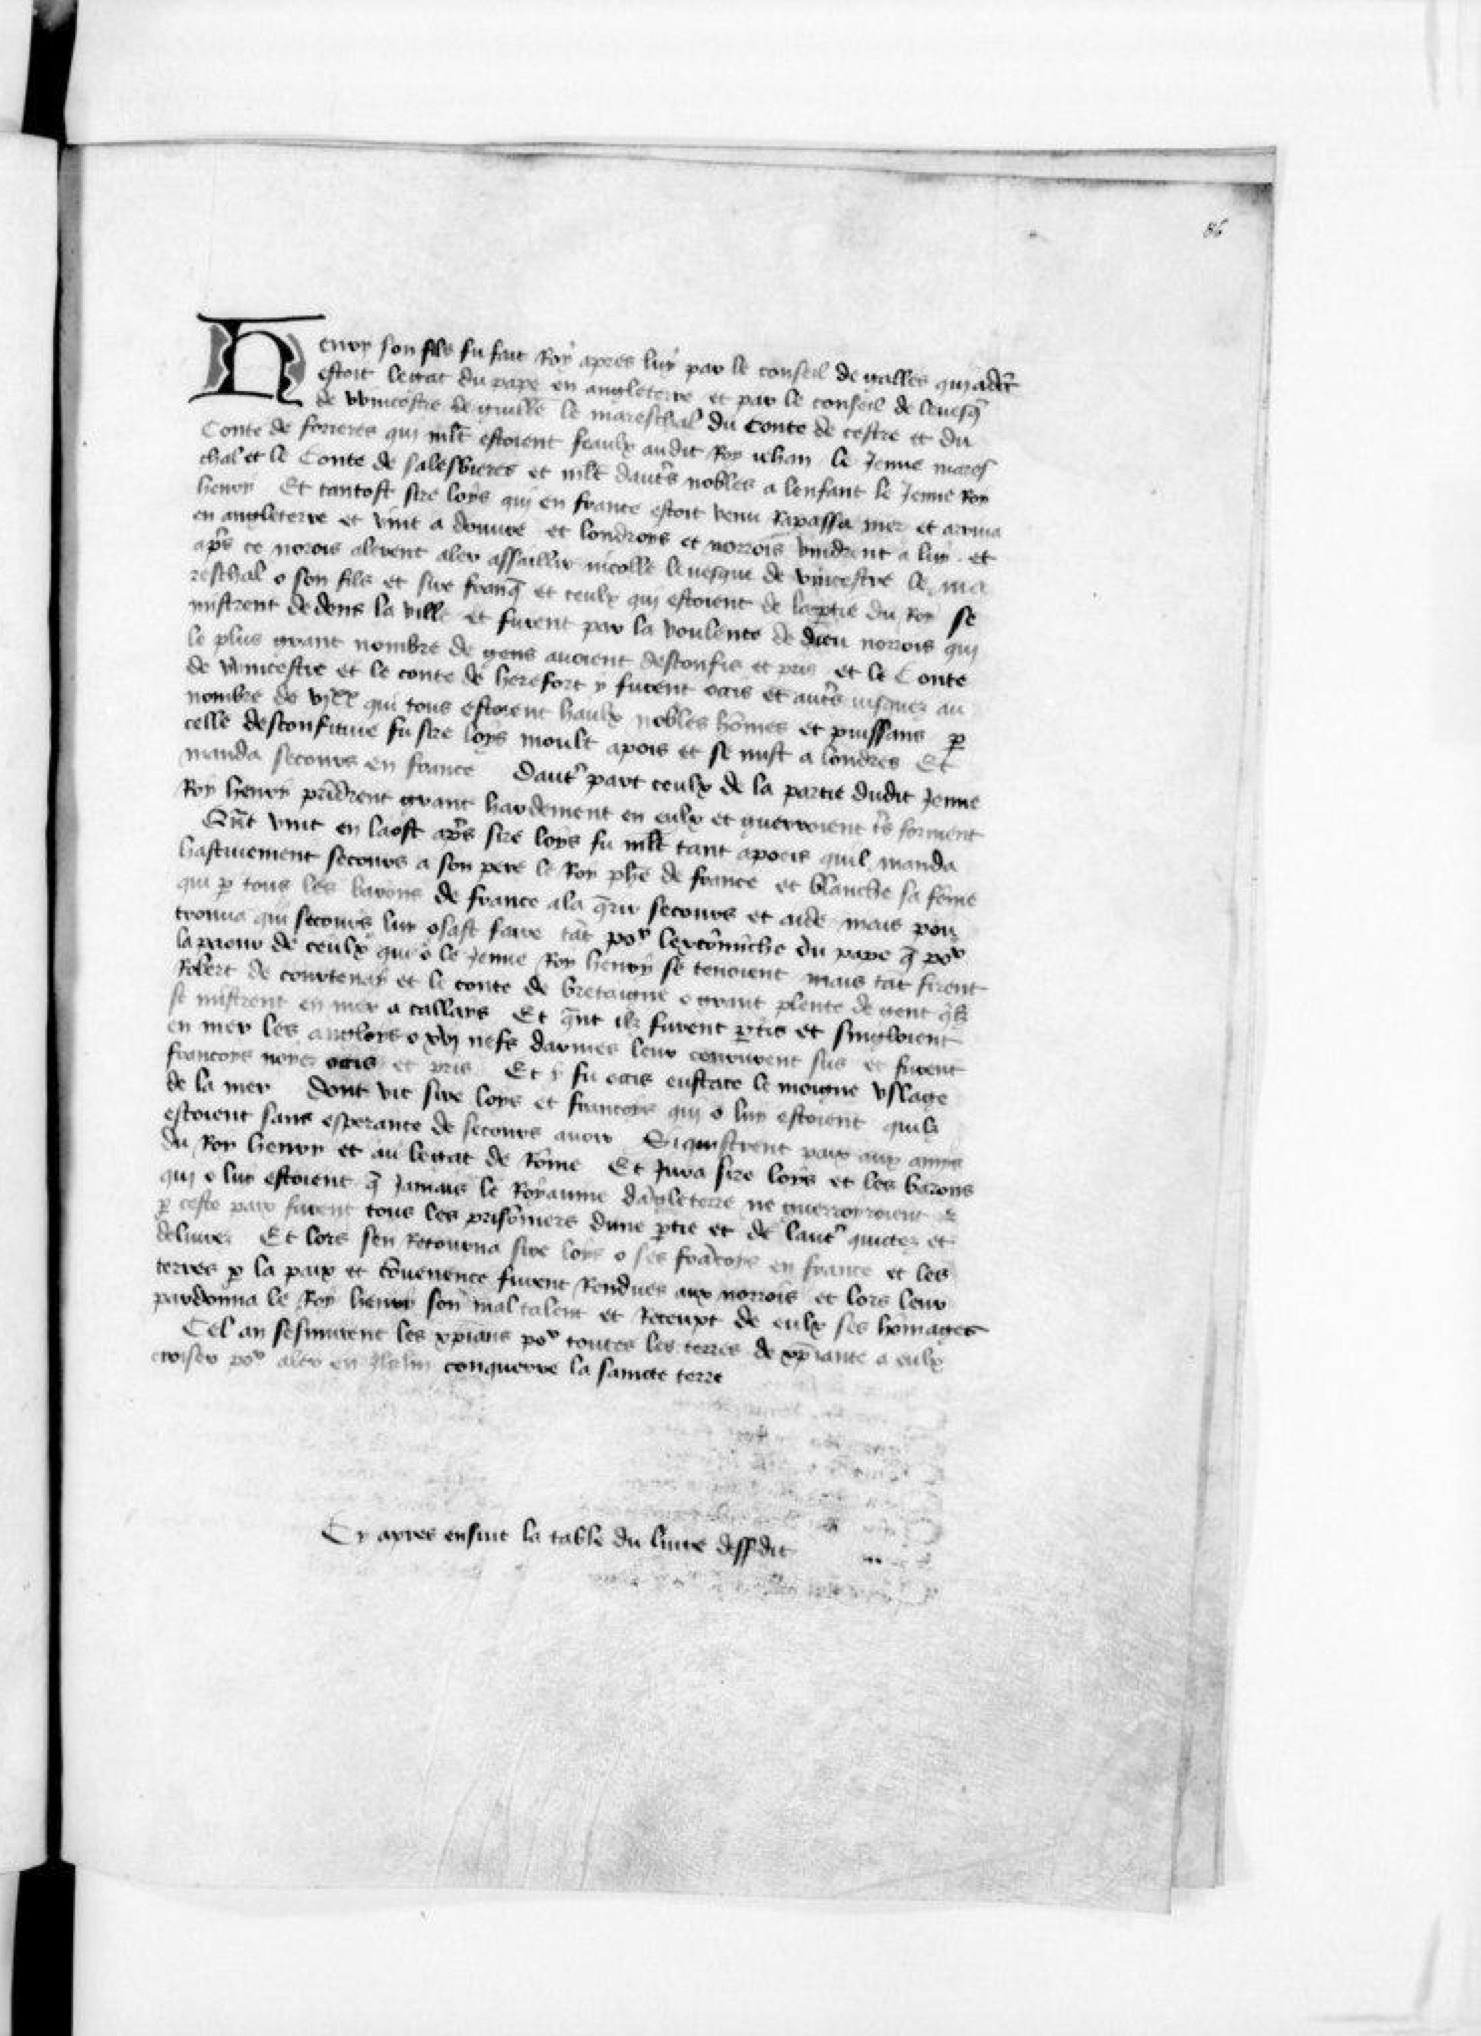 86
Henry son filz fu fait Roy apres luy par le conseil de galles qui adõt
estoit legat du pape en angleterre et par le conseil de leuesq̃
de vvincestre de guille le mareschal du Conte de cestre et du
Conte de forieres qui mlt estoient feaulx audit Roy iehan le Jenne mares
chal et le Conte de salesbieres et mlt dautrs nobles a lenfant le Jenne Roy
henry Et tantost sire loys qui en france estoit venu Rapassa mer et arriua
en angleterre et vint a douure et londroys et norrois vindrent a luy et
aprs ce norois alerent aler assaillir nicolle leuesque de vincestre le ma
reschal o son filz et sire franq̃ et ceulx qui estoient de la ptie du Roy se
mistrent dedens la ville et furent par la voulente de dieu norrois qui
le plus grant nombre de gens auoient desconfis et pris et le Conte
de vvincestre et le conte de herefort y furent ocis et autrs iusquez au
nombre de vixx qui tous estoient haulx nobles hõmes et puissans p
celle desconfiture fu sire loys moult apois et se mist a londres Et
manda secours en france Dautr part ceulx de la partie dudit Jenne
Roy henry prindrent grant hardement en eulx et guerroient trs forment
Qñt vint en laost aprs sire loys fu mlt tant apoeis quil manda
hastiuement secours a son pere le Roy phe de france et blanche sa fẽme
qui p tous les barons de france ala q̃rir secours et aide mais pou
trouua qui secours luy osast faire tãt por lexcõmiche du pape q̃ por
la paour de ceulx qui o le Jenne Roy henry se tenoient mais tãt firent
Robert de courtenay et le conte de bretaigne o grant plente de gent
se mistrent en mer a callays Et q̃nt ilz furent ptis et singloient
en mer les angloys o xvi nefs darmes leur coururent sus et furent
francoys noyez ocis et pris Et y fu ocis eustace le moigne vslage
de la mer Dont vit sire loys et francoys qui o luy estoient quilz
estoient sans esperance de secours auoir Si quistrent paix aux amys
du Roy henry et au legat de Rõme Et Jura sire loys et les barons
qui o luy estoient q̃ Jamais le Royaume dãgleterre ne guerroyroient
p ceste paix furent tous les prisõniers dune ptie et de lautr quictez et
deliurez Et lors sen Retourna sire loys o ses frãcoys en france et les
terres p la paix et cõuenence furent Rendues aux norrois et lors leur
pardonna le Roy henry son maltalent et Receupt de eulx ses hõmages
Cel an sesmurent les xp̃ians por toutes les terres de xp̃iante a eulx
croiser por aler en Jhrlm conquerre la saincte terre
Cy apres ensuit la table du liure dessdit